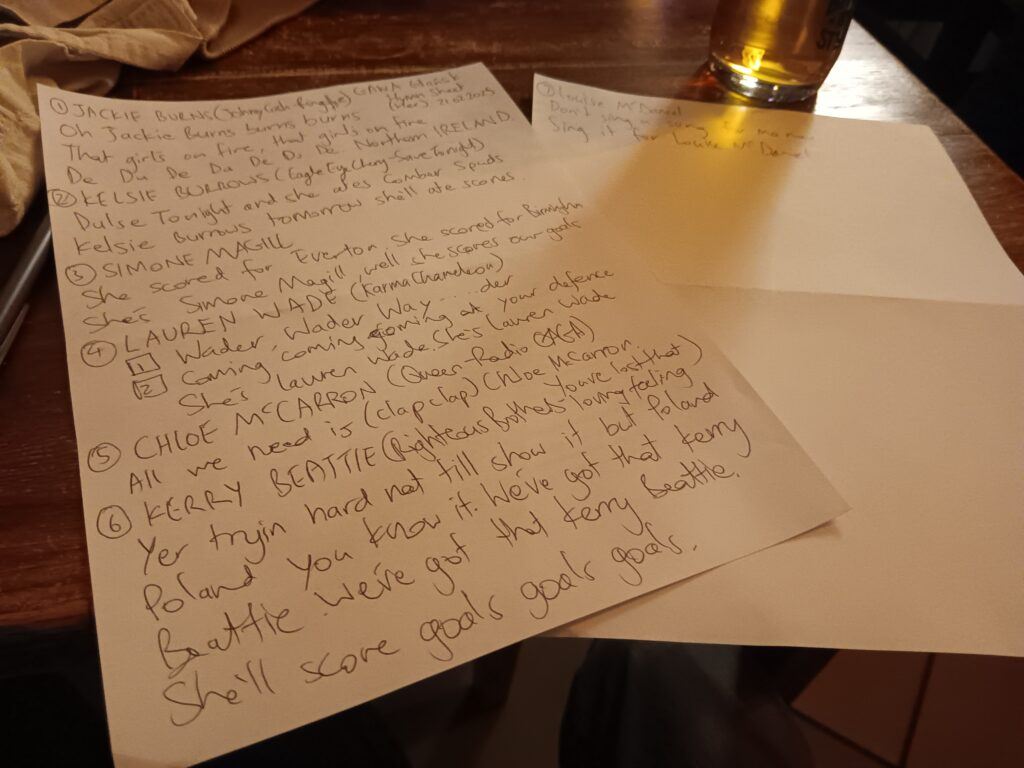 ① JACKIE BURNS (Johnny Cash Ring of Fire) GAWA Gdańsk
Oh Jackie Burns burns burns
That girls on fire, that girls on fire
De Du De Da De D. De. Northern IRELAND.
② KELSIE BURROWS (Eagle Eye Cherry-Save Tonight)
Dulse Tonight and she ates Comber Spuds
Kelsie Burrows tomorrow she'll ate scones.
③ SIMONE MAGILL
She scored for Everton. She scored for Birmingham
She's Simone Magill, well she scores our goals
④ LAUREN WADE (Karma Chameleon)
1 Wader, Wader Way....der
2 Coming, coming coming at your defence
She's Lauren Wade. She's Lauren Wade
⑤ CHLOE McCARRON (Queen-Radio GAGA)
All we need is (clap clap) Chloe McCarron.
⑥ KERRY BEATTIE (Righteous Brothers You've lost that)
loving feeling
Yer tryin hard not till show it but Poland
Poland you know it. We've got that Kerry
Beattie we've got that Kerry Beattie.
She'll score goals goals goals.
⑦ Louise McDaniel
Don't
Sing it for Louise McDaniel